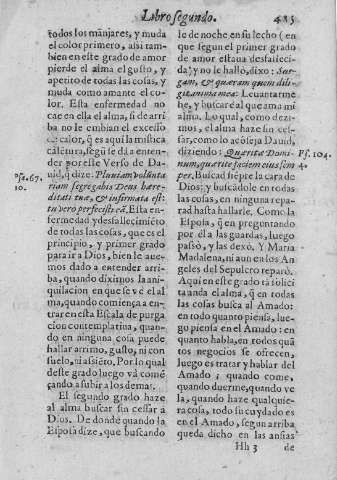 Libro segundo.
485
todos los manjares, y muda
el color primero, assi tam-
bien en este grado de amor
pierde el alma el gusto, y
apetito de todas las cosas, y
muda como amante el co-
lor. Esta enfermedad no
cae en ella el alma, si de arri
ba no le embian el excesso
de calor, q̃ es aqui la mistica
calẽtura, segũ se dà a enten-
der por este Verso de Da-
uid, q̃ dize: Pluuiam volunta
riam segregabis Deus hære-
ditati tuæ, & infirmata est:
tu vero perfecisti eã. Esta en-
fermedad y desfallecimiẽto
de todas las cosas, que es el
principio, y primer grado
para ir a Dios, bien le aue-
mos dado a entender arri-
ba, quando diximos la ani-
quilacion en que se vè el al
ma, quando comiença a en-
trar en esta Escala de purga
cion contemplatiua, quan-
do en ninguna cosa puede
hallar arrimo, gusto, ni con
suelo, ni assiẽto. Por lo qual
deste grado luego và comẽ
çando a subir a los demas.
El segundo grado haze
al alma buscar sin cessar à
Dios. De donde quando la
Esposa dize, que buscando
Psa. 67.
10.
le de noche en su lecho (en
que segun el primer grado
de amor estaua desfalleci-
da) y no le hallò, dixo: Sur-
gam, & quæram quem dili-
git anima mea: Leuantarmè
he, y buscarè al que ama mi
alma. Lo qual, como dezi-
mos, el alma haze sin ces-
sar, como lo acõseja Dauid,
diziendo: Quærite Domi-
num, quærite faciem eius sem
per. Buscad siẽpre la cara de
Dios; y buscãdole en todas
las cosas, en ninguna repa-
rad hasta hallarle. Como la
Esposa, q̃ en preguntando
por èl a las guardas, luego
passò, y las dexò. Y Maria
Madalena, ni aun en los An
geles del Sepulcro reparò.
Aqui en este grado tã solici
ta anda el alma, q̃ en todas
las cosas busca al Amado:
en todo quanto piensa, lue-
go piensa en el Amado: en
quanto habla, en todos quã
tos negocios se ofrecen,
luego es tratar y hablar del
Amado; quando come,
quando duerme, quando ve
la, quando haze qualquie-
ra cosa, todo su cuydado es
en el Amado, segun arriba
queda dicho en las ansias
Ps. 104.
4.
Hh 3
de